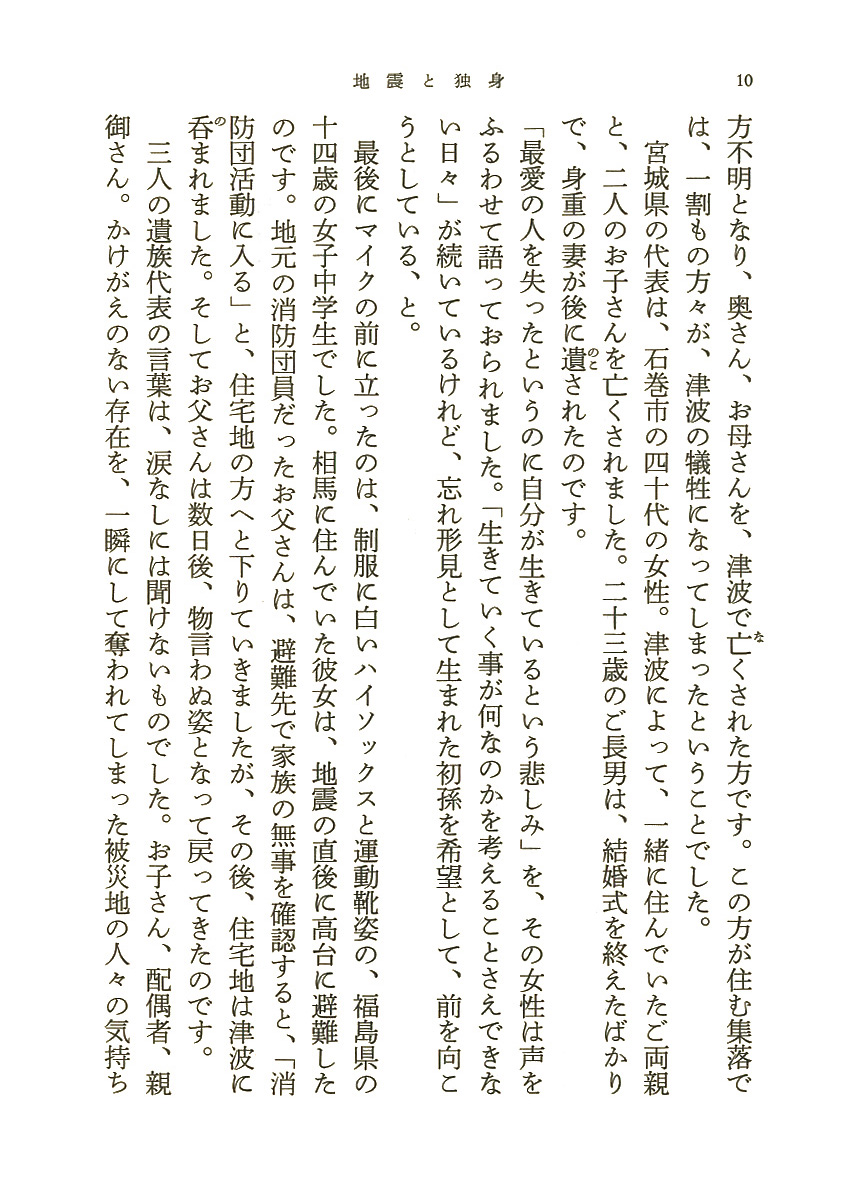 10
地震と独身
方不明となり、奥さん、お母さんを、津波で亡くされた方です。この方が住む集落で
は、一割もの方々が、津波の犠牲になってしまったということでした。
宮城県の代表は、石巻市の四十代の女性。津波によって、一緒に住んでいたご両親
と、二人のお子さんを亡くされました。二十三歳のご長男は、結婚式を終えたばかり
で、身重の妻が後に遺されたのです。
「最愛の人を失ったというのに自分が生きているという悲しみ」を、その女性は声を
ふるわせて語っておられました。「生きていく事が何なのかを考えることさえできな
い日々」が続いているけれど、忘れ形見として生まれた初孫を希望として、前を向こ
うとしている、と。
最後にマイクの前に立ったのは、制服に白いハイソックスと運動靴姿の、福島県の
十四歳の女子中学生でした。相馬に住んでいた彼女は、地震の直後に高台に避難した
のです。地元の消防団員だったお父さんは、避難先で家族の無事を確認すると、「消
防団活動に入る」と、住宅地の方へと下りていきましたが、その後、住宅地は津波に
呑まれました。そしてお父さんは数日後、物言わぬ姿となって戻ってきたのです。
三人の遺族代表の言葉は、涙なしには聞けないものでした。お子さん、配偶者、親
御さん。かけがえのない存在を、一瞬にして奪われてしまった被災地の人々の気持ち